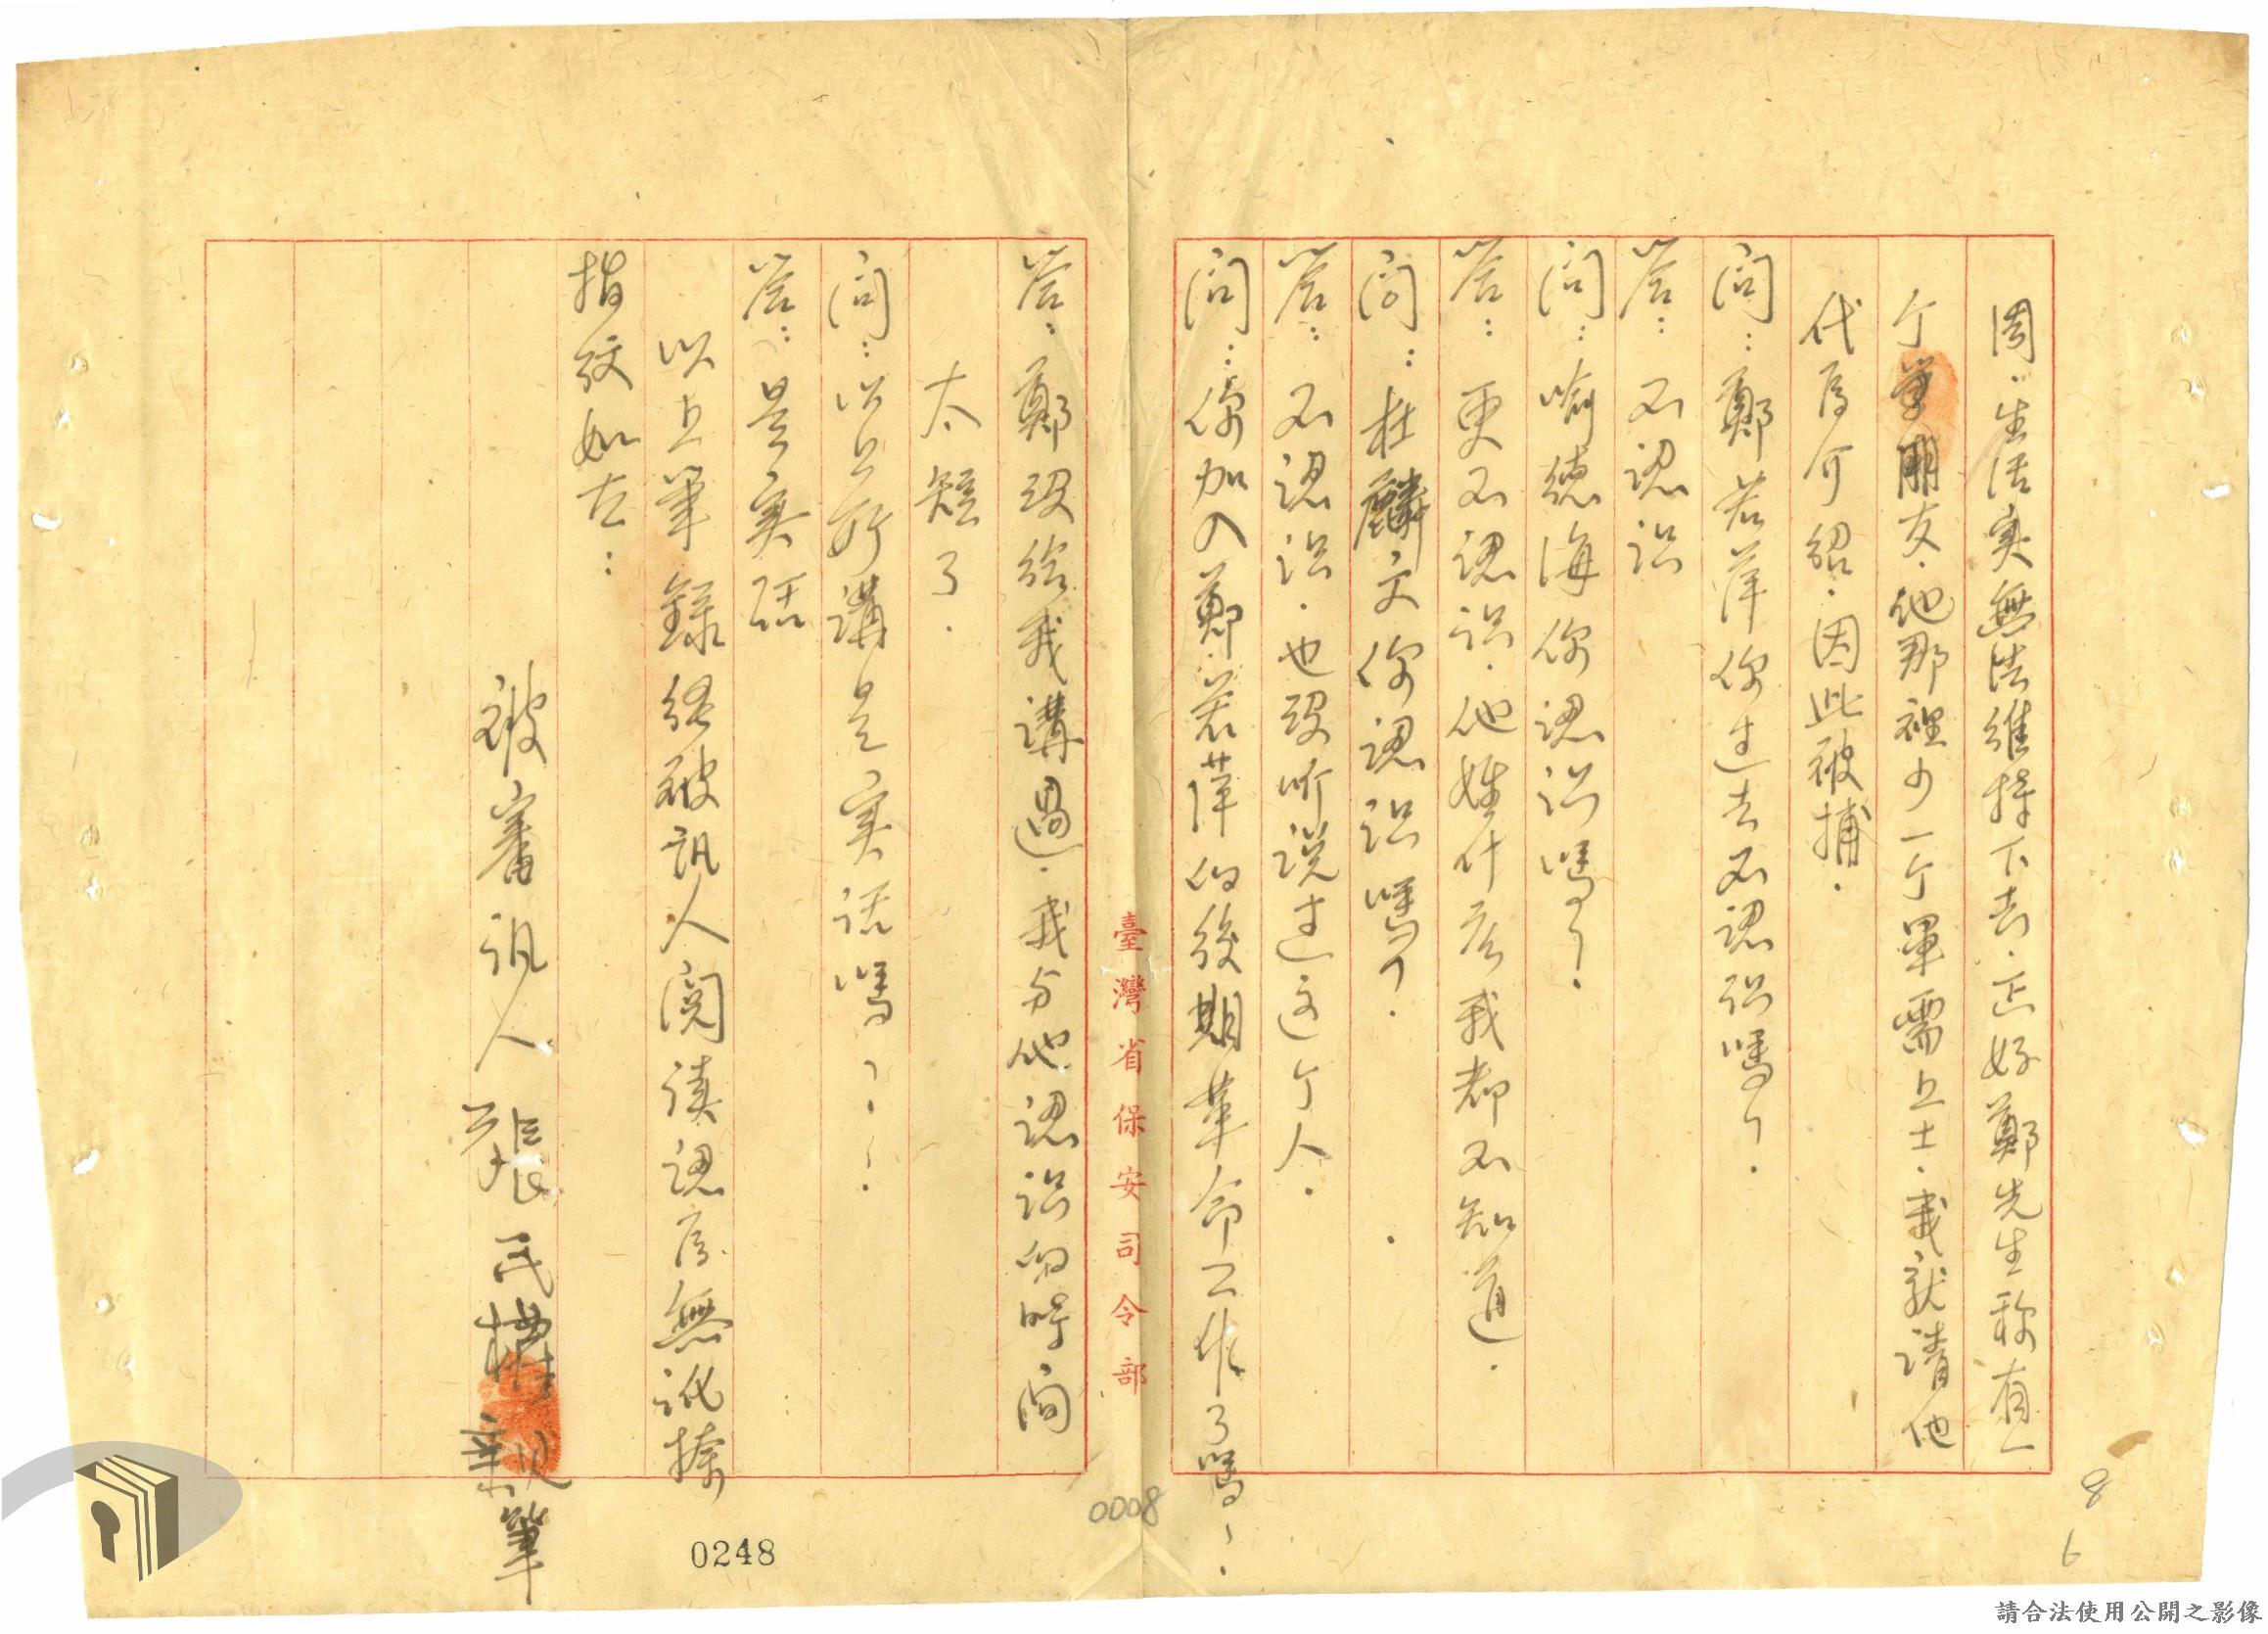 周．生活实無法维持下去．正好鄭先生称有一
个軍朋友．他那裡少一个軍需上士．我就请他
代为介紹．因此被捕．
问：鄭若萍你过去不認识嗎？．
答：不認识
问：喻德海你認识嗎？．
答：更不認识．他姓什么我都不知道．
问：杜麟文你認识嗎？．
答：不認识．也沒听说过这个人．
问：你加入鄭若萍的後期革命工作了嗎？．
臺灣省保安司令部
答：鄭沒给我講過．我与他認识的时间
太短了．
问：以上所講是实话嗎？．
答：是实話
以上筆錄经被訊人閱读認为無訛捺
指紋如左：
被審訊人 張民權 親筆
0008
0248
8
6
請合法使用公開之影像